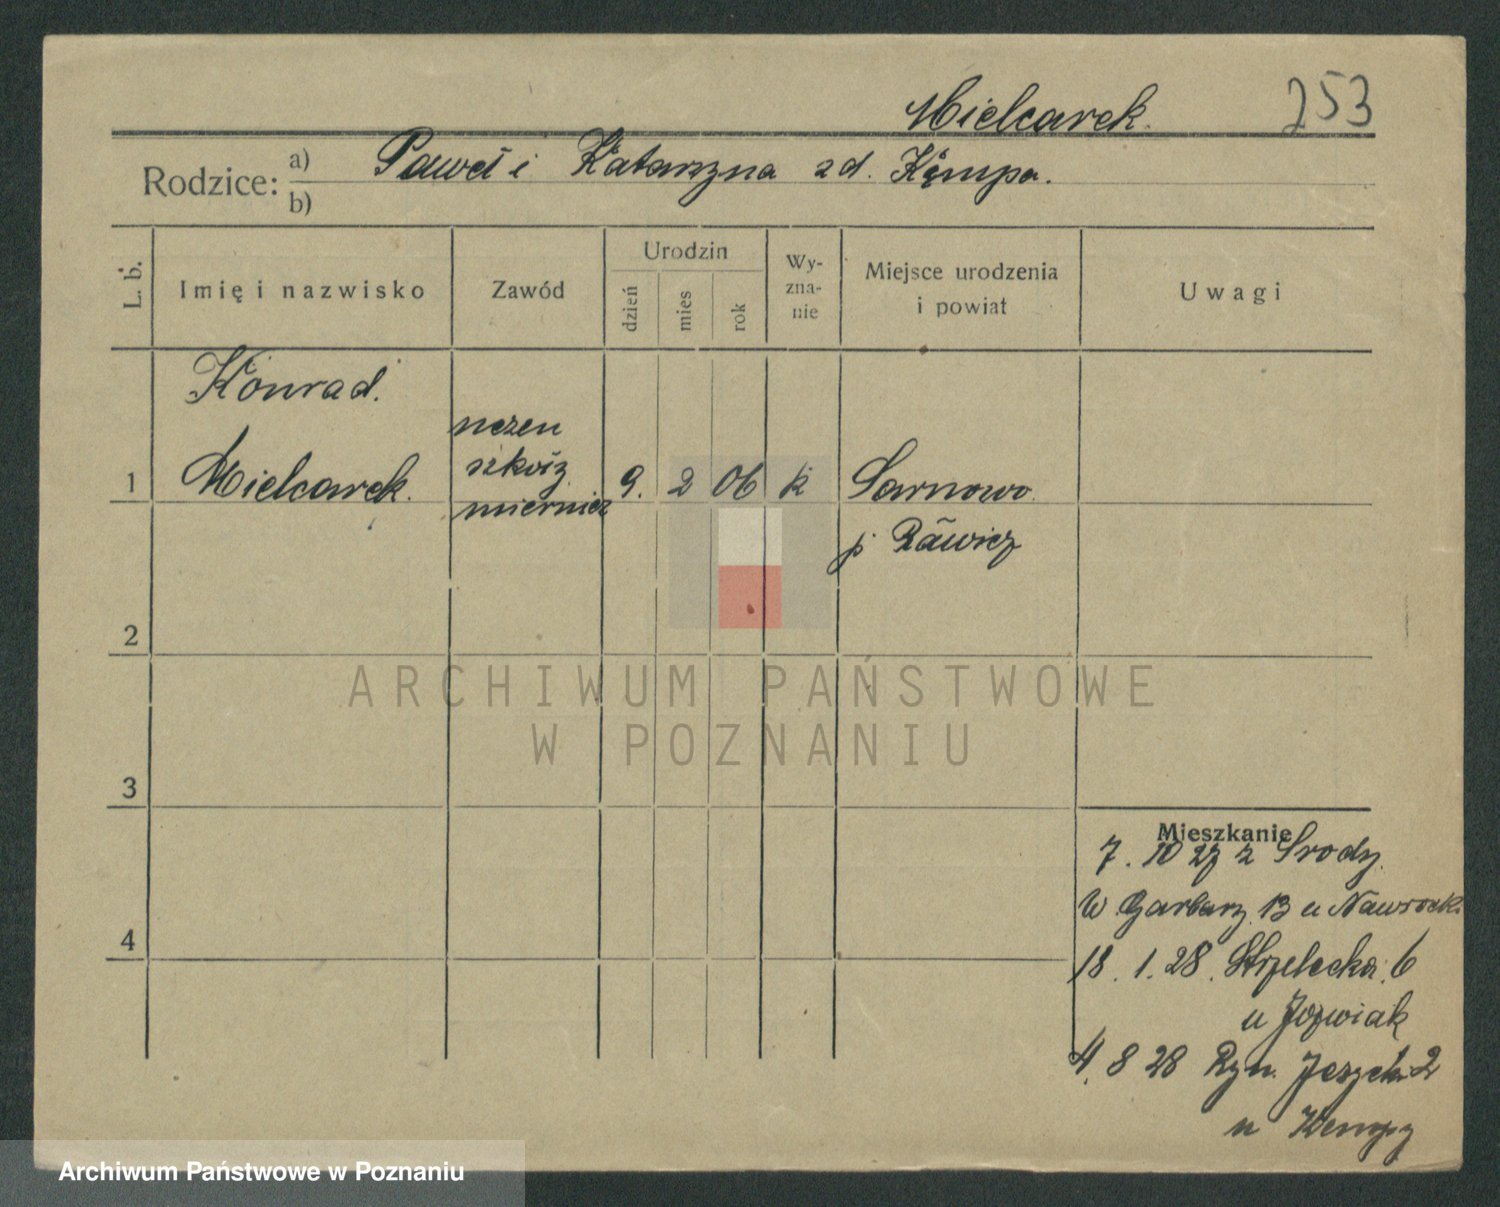 Mielcarek.
253
Rodzice:
a) Paweł i Katarzyna zd. Kempa.
b)
L. b.
Imię i nazwisko
Zawód
Urodzin
dzień
mies
rok
Wy-
zna-
nie
Miejsce urodzenia
i powiat
Uwagi
Konrad.
1 Mielcarek.
uczeń
szkoły
miernicz
9. 2 06 k Sarnowo
p Rawicz
2
3
4
Mieszkanie
7. 10 27 z Środy.
W Garbary 13 u Nawrocki
18. 1. 28. Strzelecka 6
u Jozwiak
4. 8 28 Ryn. Jeżycki 2
u Kempy
ARCHIWUM PAŃSTWOWE
W POZNANIU
Archiwum Państwowe w Poznaniu